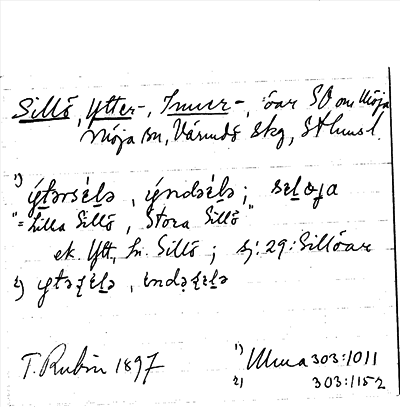 Sillö, Ytter-, Inner-, öar SO om Möja
Möja sn, Värmdö skg, Sthms l.
1) ýtərsélə, ýndəsélə;
"= Lilla Sillö, Stora Sillö"
ek. Ytt., In. Sillö; sj: 29: Sillöar
2)
T. Rubin 1897
1) Ulma 303:1011
2) 303:1152